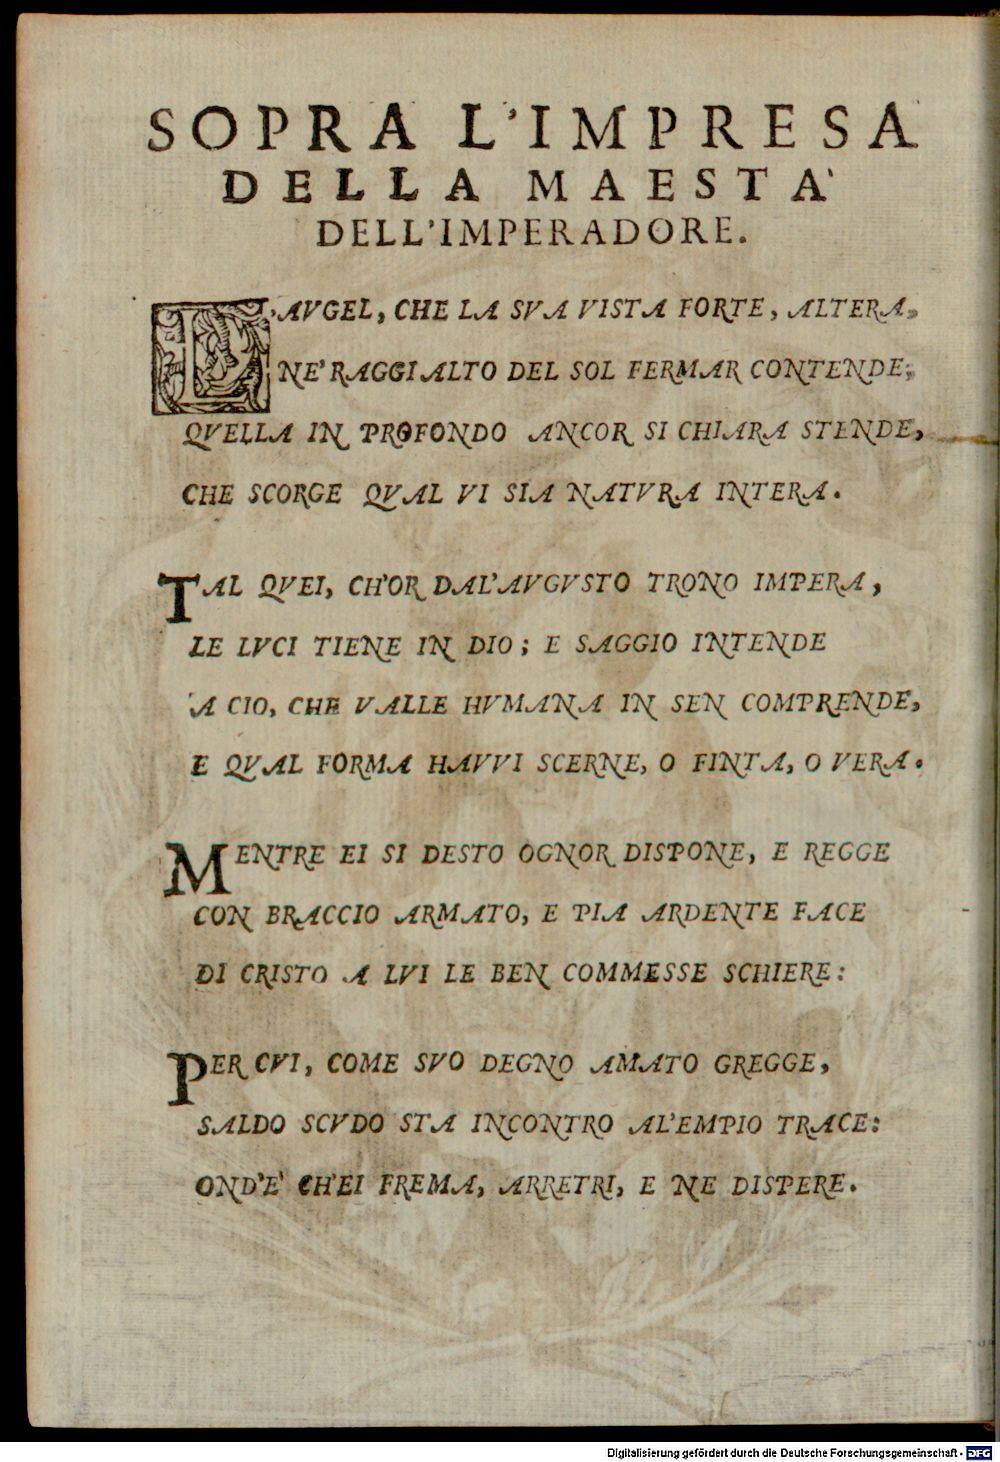 SOPRA L'IMPRESA
DELLA MAESTA'
DELL'IMPERADORE.
L'AVGEL, CHE LA SVA VISTA FORTE, ALTERA,
NE' RAGGI ALTO DEL SOL FERMAR CONTENDE;
QVELLA IN PROFONDO ANCOR SI CHIARA STENDE,
CHE SCORGE QVAL VI SIA NATVRA INTERA.
TAL QVEI, CH'OR DAL'AVGVSTO TRONO IMPERA,
LE LVCI TIENE IN DIO; E SAGGIO INTENDE
'A CIO, CHE VALLE HVMANA IN SEN COMPRENDE,
E QVAL FORMA HAVVI SCERNE, O FINTA, O VERA.
MENTRE EI SI DESTO OGNOR DISPONE, E REGGE
CON BRACCIO ARMATO, E PIA ARDENTE FACE
DI CRISTO A LVI LE BEN COMMESSE SCHIERE:
PER CVI, COME SVO DEGNO AMATO GREGGE,
SALDO SCVDO STA INCONTRO AL'EMPIO TRACE:
OND'E' CH'EI FREMA, ARRETRI, E NE DISPERE.
Digitalisierung gefördert durch die Deutsche Forschungsgemeinschaft - DFG